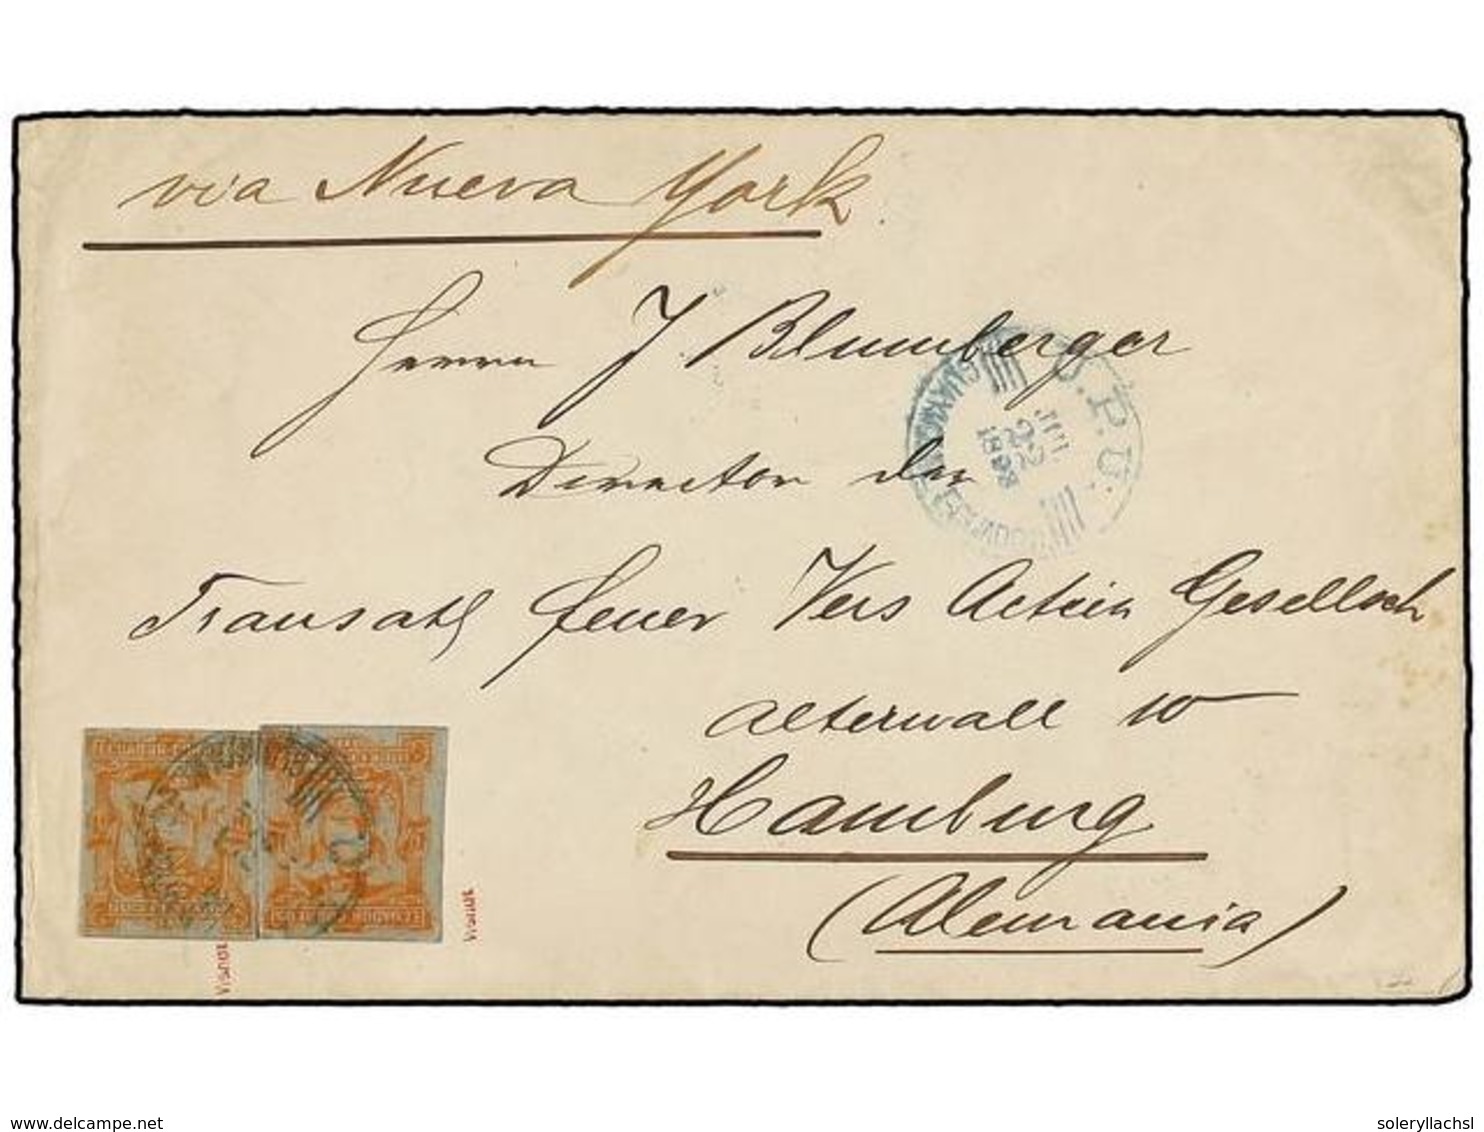 via Nueva York.
Herrn J. Blumberger
Director der
Transatl feuer Vers Actien Gesellsch
alterwall 10
Hamburg
(Alemania)
U.P.U.
JUL
22
ECUADOR
ECUADOR
delcampe.net
soleryllachsl